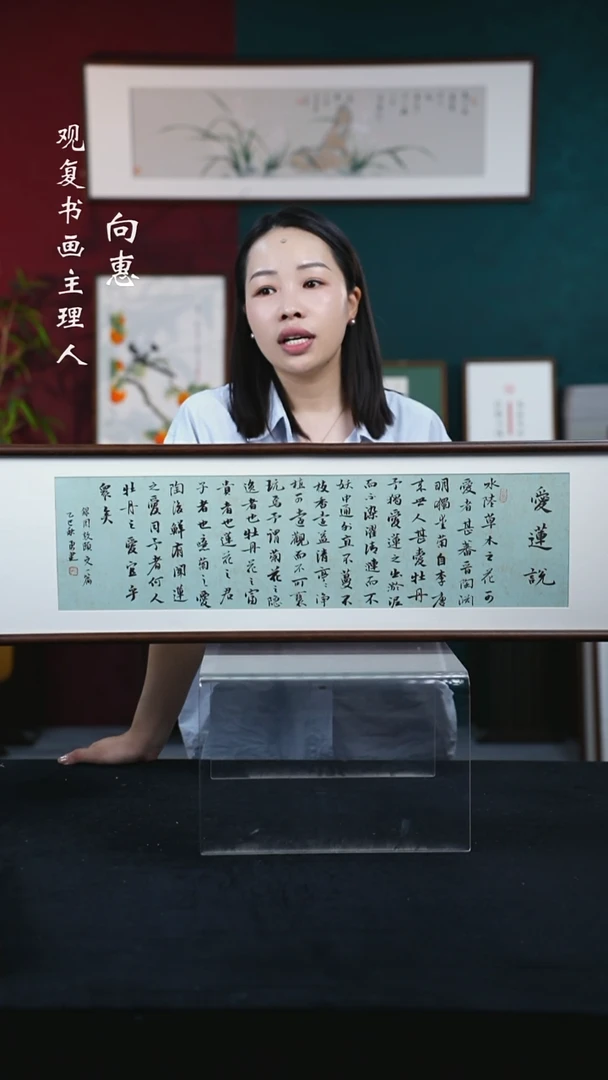 观复书画主理人
向惠
愛蓮說
水陸草木之花可
愛者甚蕃晉陶淵
明獨愛菊自李唐
来世人甚愛牡丹
予獨愛蓮之出淤泥
而不染濯清漣而不
妖中通外直不蔓不
枝香遠益清亭〻淨
植可遠觀而不可褻
玩焉予謂菊花之隱
逸者也牡丹花之富
貴者也蓮花之君
子者也噫菊之愛
陶後鮮有聞蓮
之愛同予者何人
牡丹之愛宜乎
眾矣
錄周敦頤文一篇
乙巳秋